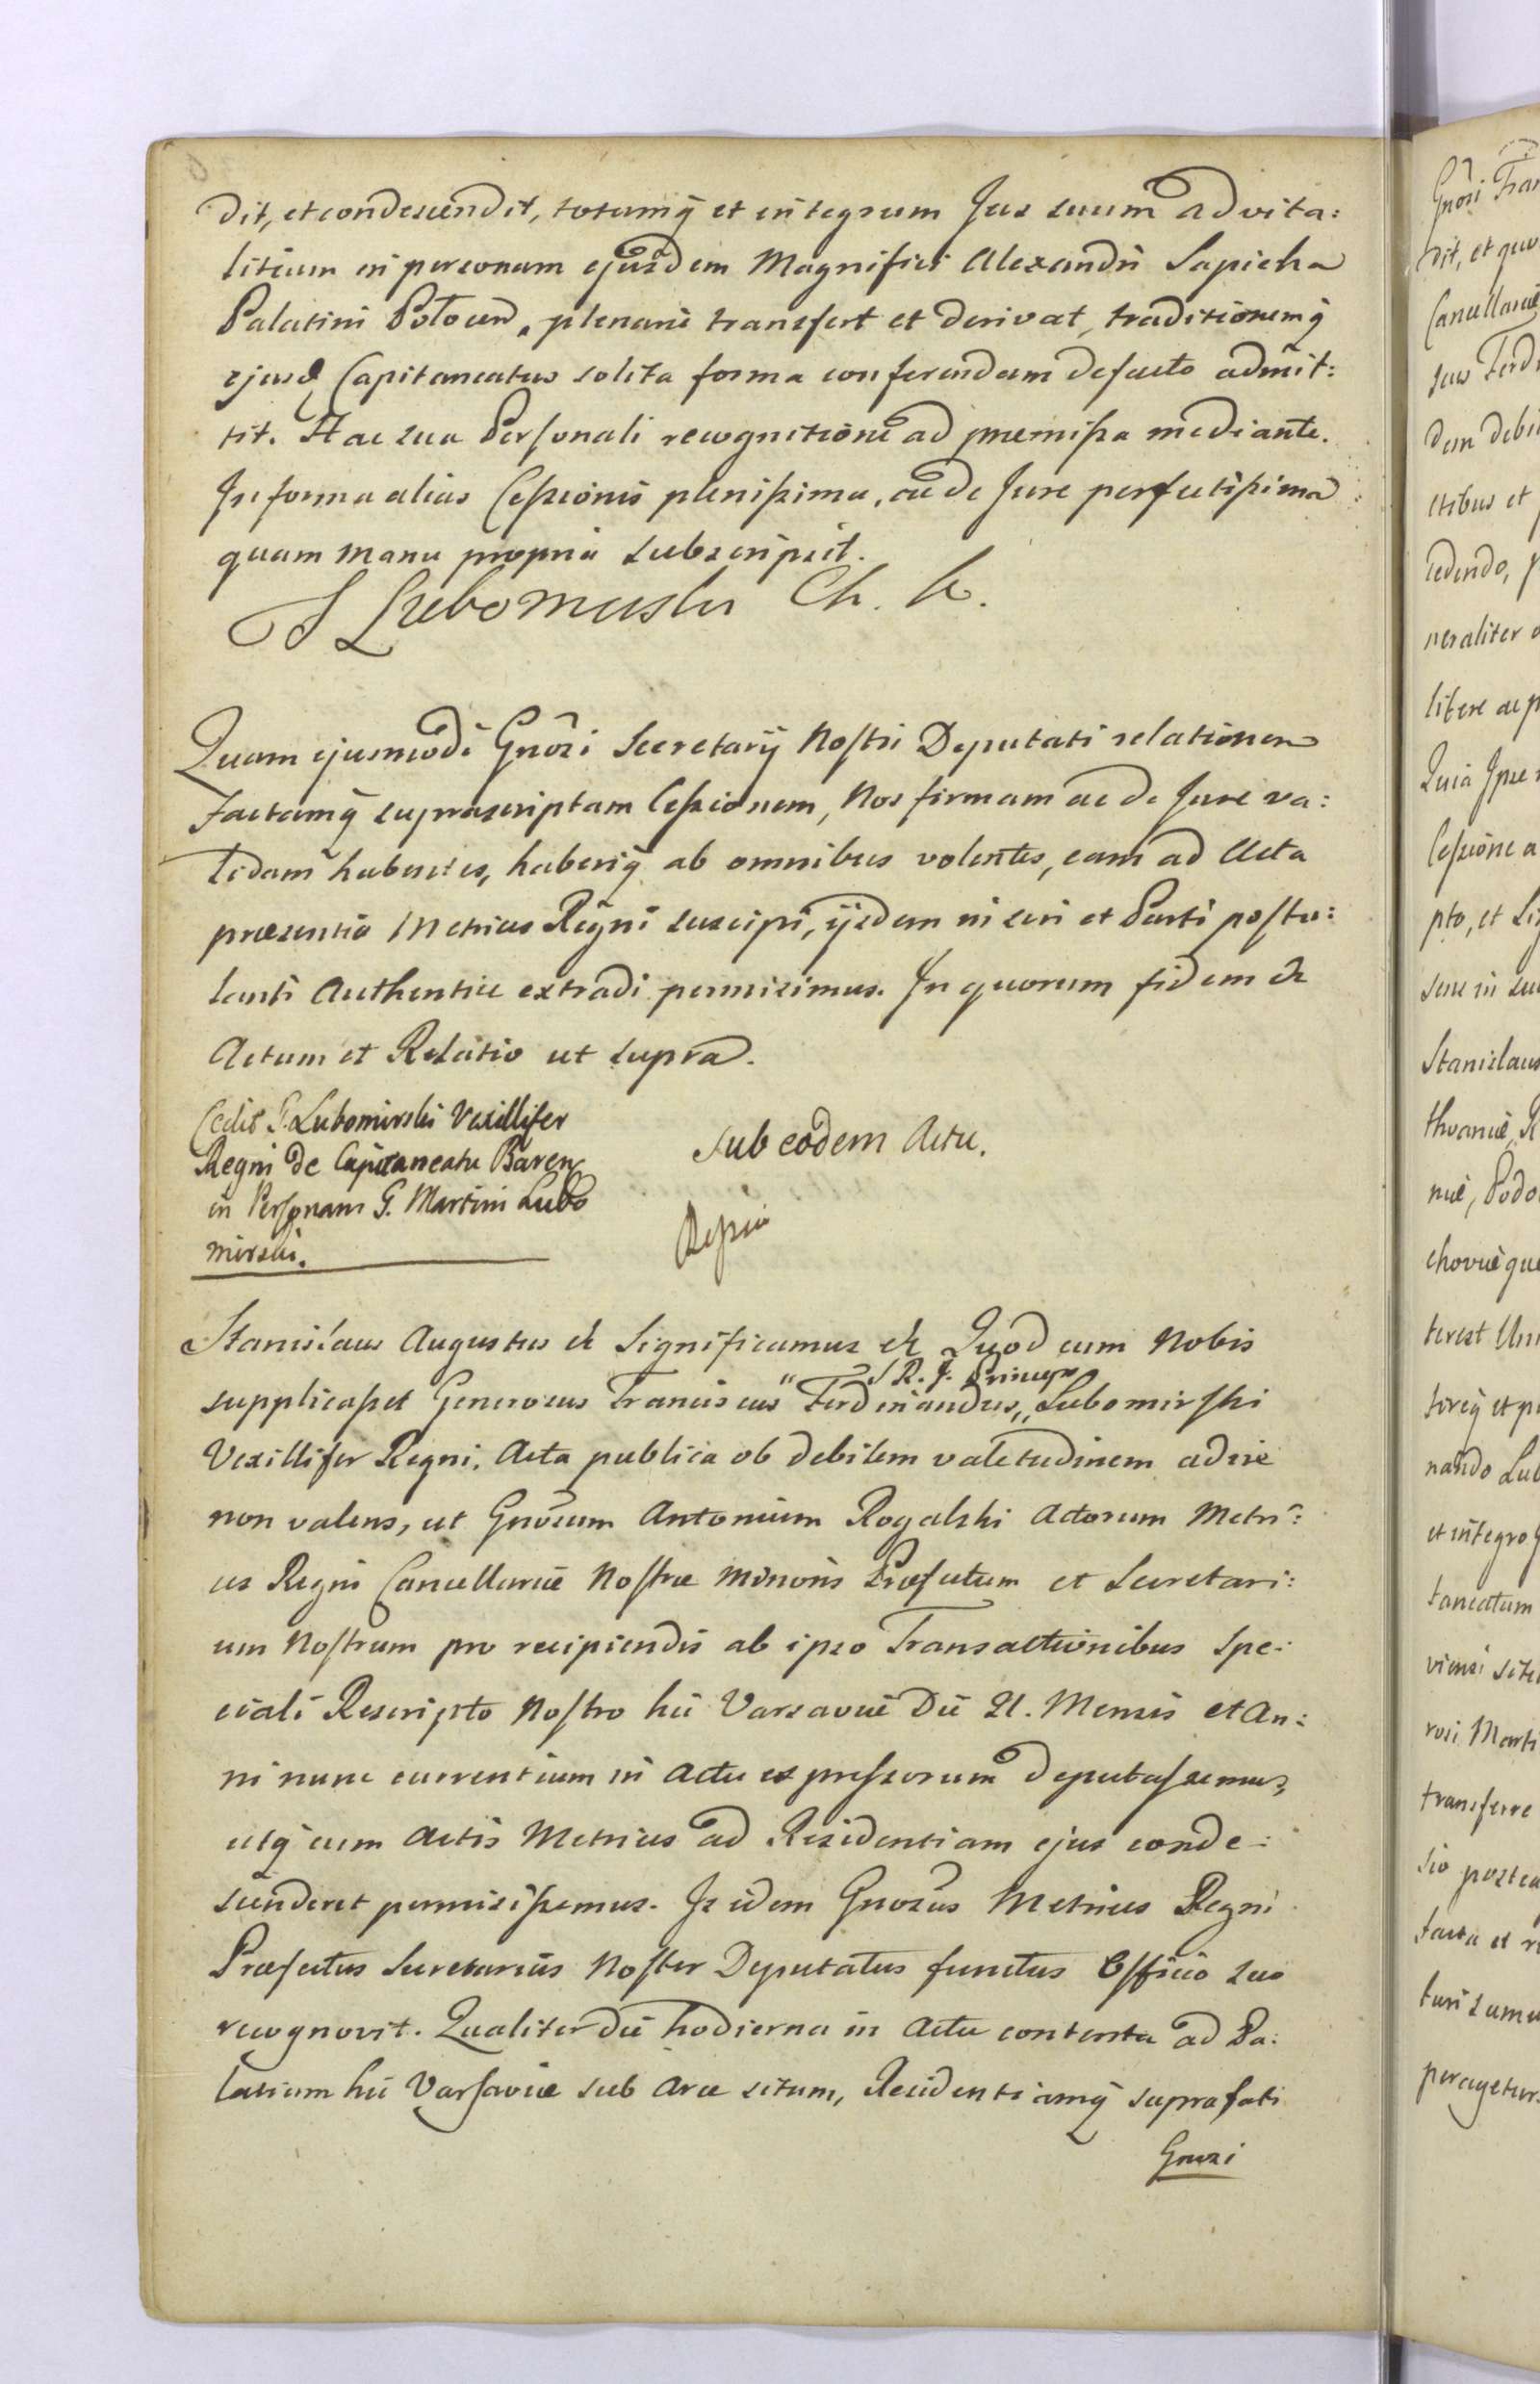 dit, et condescendit, totumq̃ et integrum Jus suum advita:
litium in personam ejusdem Magnifici Alexandri Sapieha
Palatini Polocen, plenarie transfert et derivat, traditionemq̃
ejusd Capitaneatus solita forma conferendam defacto admit:
tit. Hac sua Personali recognitione ad præmissa mediante.
In forma alias Cessionis plenissima, ac de Jure perfectissima
quam manu propria subscripsit.
Lubomirski Ch. k.
Quam ejusmodi Gnõsi Secretarij Nostri Deputati relationem
factamq̃ suprascriptam Cessionem, Nos firmam ac de Jure va:
lidam habentes, haberiq̃ ab omnibus volentes, eam ad Acta
præsentia Metrices Regni suscipi, ijsdem inseri et Parti postu:
lanti Authentice extradi permisimus. In quorum fidem &
Actum et Relatio ut supra.
Cedit G. Lubomirski Vexillifer
Regni de Capitaneatu Baren
in Personam G. Martini Lubo
mirski.
Sub eodem Actu.
Stanislaus Augustus & Significamus & Quod cum Nobis
S R. J. Princeps
supplicasset Generosus Franciscus " Ferdinandus,, Lubomirski
Vexillifer Regni, Acta publica ob debilem valetudinem adire
non valens, ut Gnõsum Antonium Rogalski Actorum Metri:
ces Regni Cancellariæ Nostræ Minoris Præfectum et Secretari:
um Nostrum pro recipiendis ab ipso Transactionibus Spe:
ciali Rescripto Nostro hic Varsaviæ Die 21. Mensis et An:
ni nunc currentium in Actu expressorum deputassemus,
utq̃ cum Actis Metrices ad Residentiam ejus conde:
scenderet permisissemus. Is idem Gnosus Metrices Regni
Præfectus Secretarius Noster Deputatus functus Officio suo
recognovit. Qualiter die hodierna in Actu contenta ad Pa:
latium hic Varsaviæ sub Arce situm, Residentiamq̃ suprafati
Gnosi